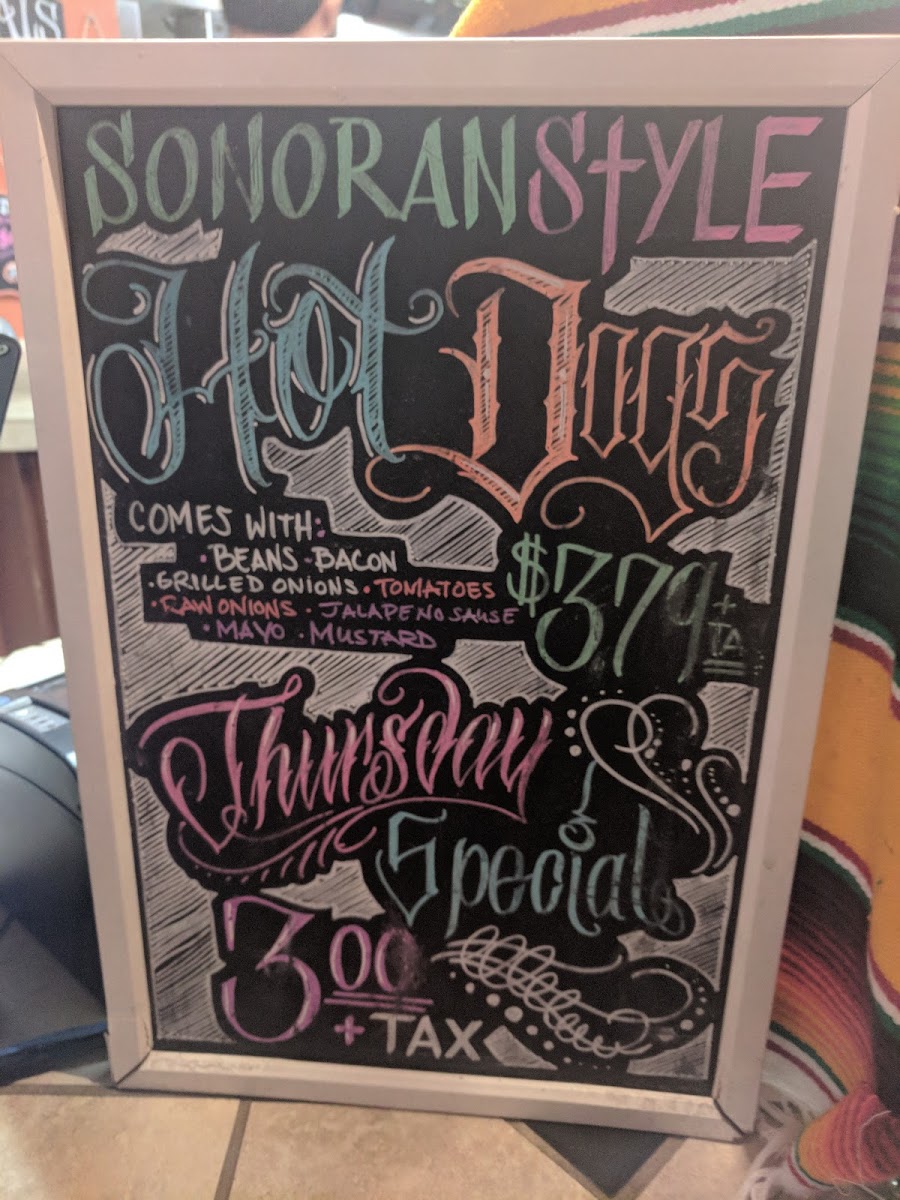 ALS
SONORAN STYLE
Hot Dogs
COMES WITH:
• BEANS • BACON
• GRILLED ONIONS • TOMATOES
• RAW ONIONS • JALAPENO SAUSE
• MAYO • MUSTARD
$3.79 + TA
Thursday
Special
3.00
+ TAX